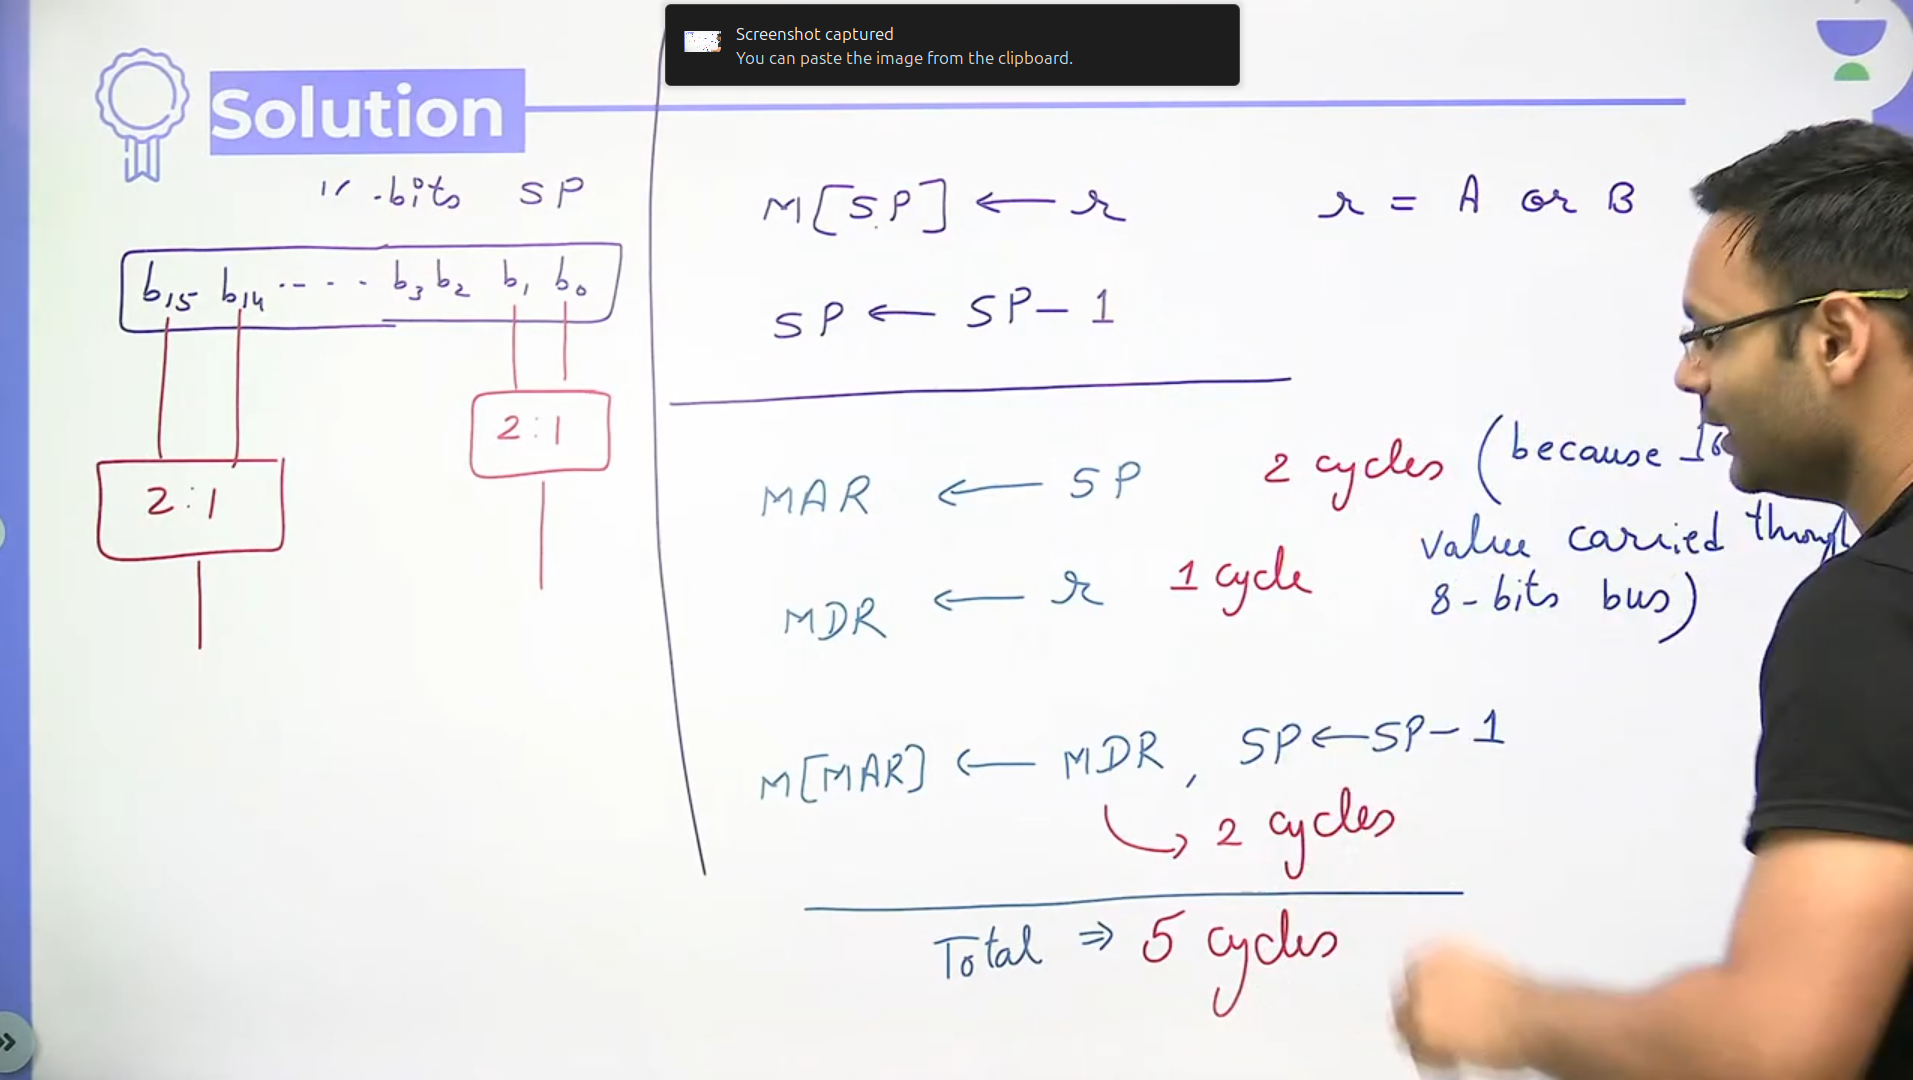 Screenshot captured
You can paste the image from the clipboard.
Solution
-bits SP
b15 b14 ---- b3 b2 b1 b0
2:1
2:1
M[SP] ← r
r = A or B
SP ← SP - 1
MAR ← SP 2 cycles (because
value carried
8-bits bus)
MDR ← r 1 cycle
M[MAR] ← MDR, SP ← SP - 1
→ 2 cycles
Total ⇒ 5 cycles